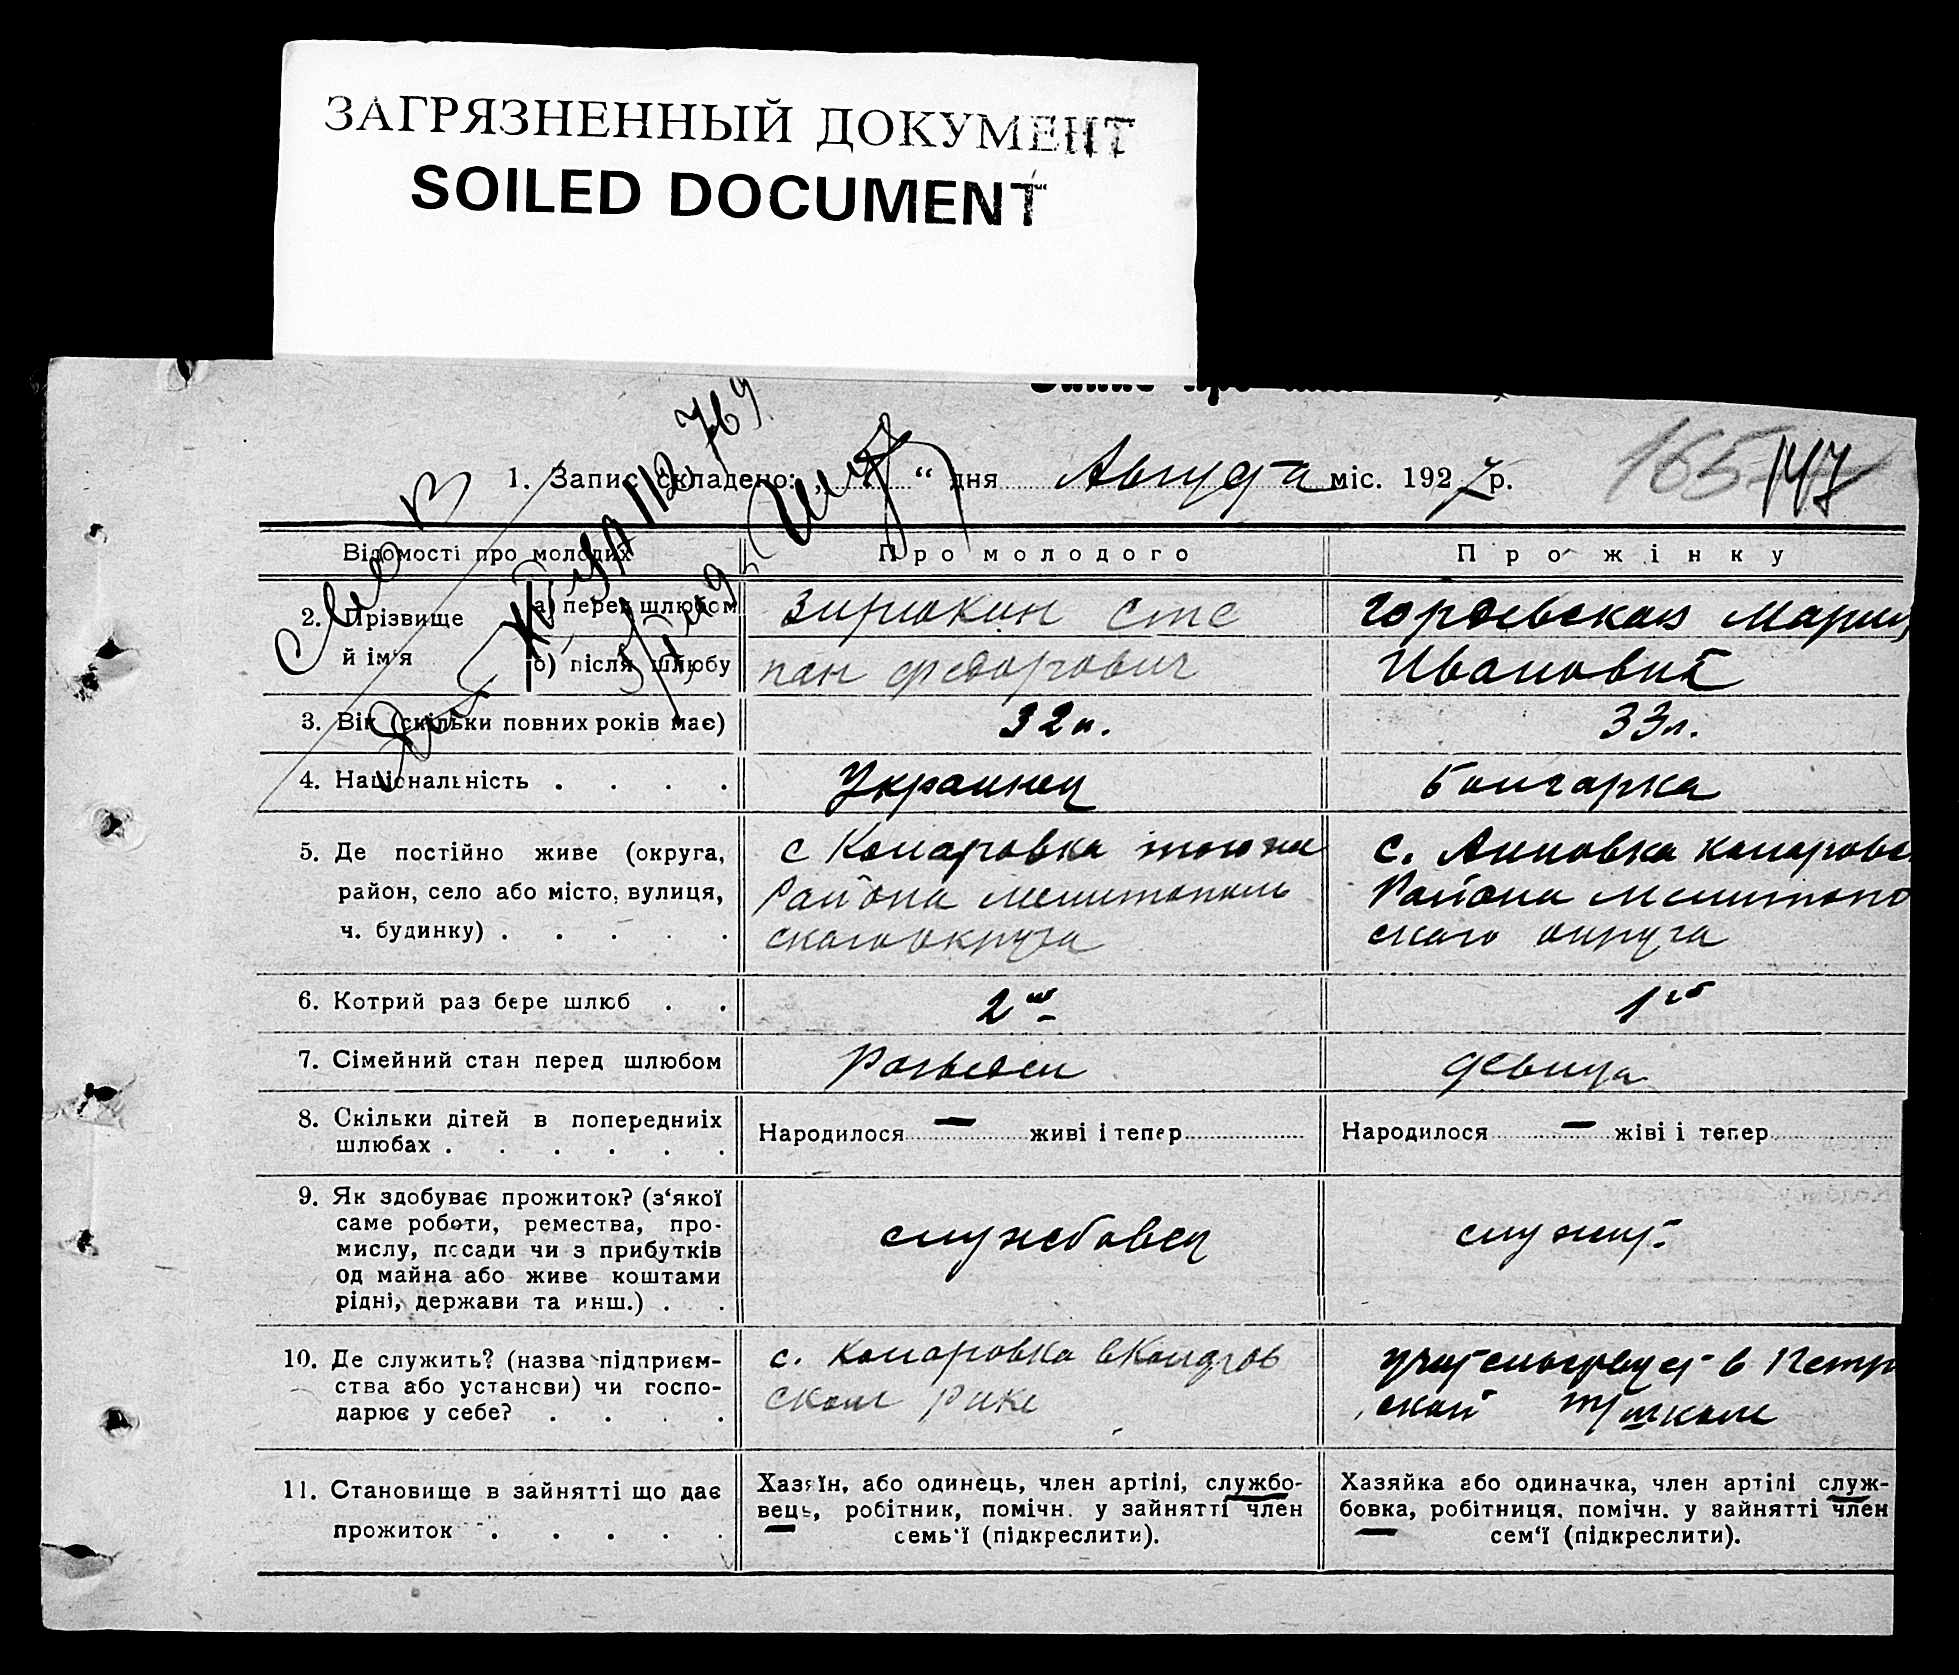 ЗАГРЯЗНЕННЫЙ ДОКУМЕНТ
SOILED DOCUMENT
165 147
1. Запис складено: „ “ дня Августа міс. 1927 р.
Відомості про молодих Про молодого Про жінку
2. Прізвище й ім'я
а) перед шлюбом
б) після шлюбу
Сте
пан Федорович
Мария
Ивановна
3. Вік (скільки повних років має) 32 л. 33 л.
4. Національність . . . . Украинец Болгарка
5. Де постійно живе (округа,
район, село або місто, вулиця,
ч. будинку) . . . . .
с Комаровка того же
Района Мелитополь
ского округа
с. Анновка Комаровс
Района Мелитопо
ского округа
6. Котрий раз бере шлюб . . 2й 1й
7. Сімейний стан перед шлюбом Разведен девица
8. Скільки дітей в попередниіх
шлюбах . . . . . .
Народилося — живі і тепер
Народилося — жіві і тепер
9. Як здобуває прожиток? (з‘якої
саме роботи, ремества, про-
мислу, посади чи з прибутків
од майна або живе коштами
рідні, держави та инш.) . .
службовец
служит
10. Де служить? (назва підприєм-
ства або установи) чи госпо-
дарює у себе? . . . .
с. Комаровка в Комаров
ском Рике
учительствует в Петр
ской тр школе
11. Становище в зайнятті що дає
прожиток . . . . .
Хазяїн, або одинець, член артілі, службо-
вець, робітник, помічн. у зайнятті член
семь‘ї (підкреслити).
Хазяйка або одиначка, член артілі служ-
бовка, робітниця, помічн. у зайнятті член
сем‘ї (підкреслити).